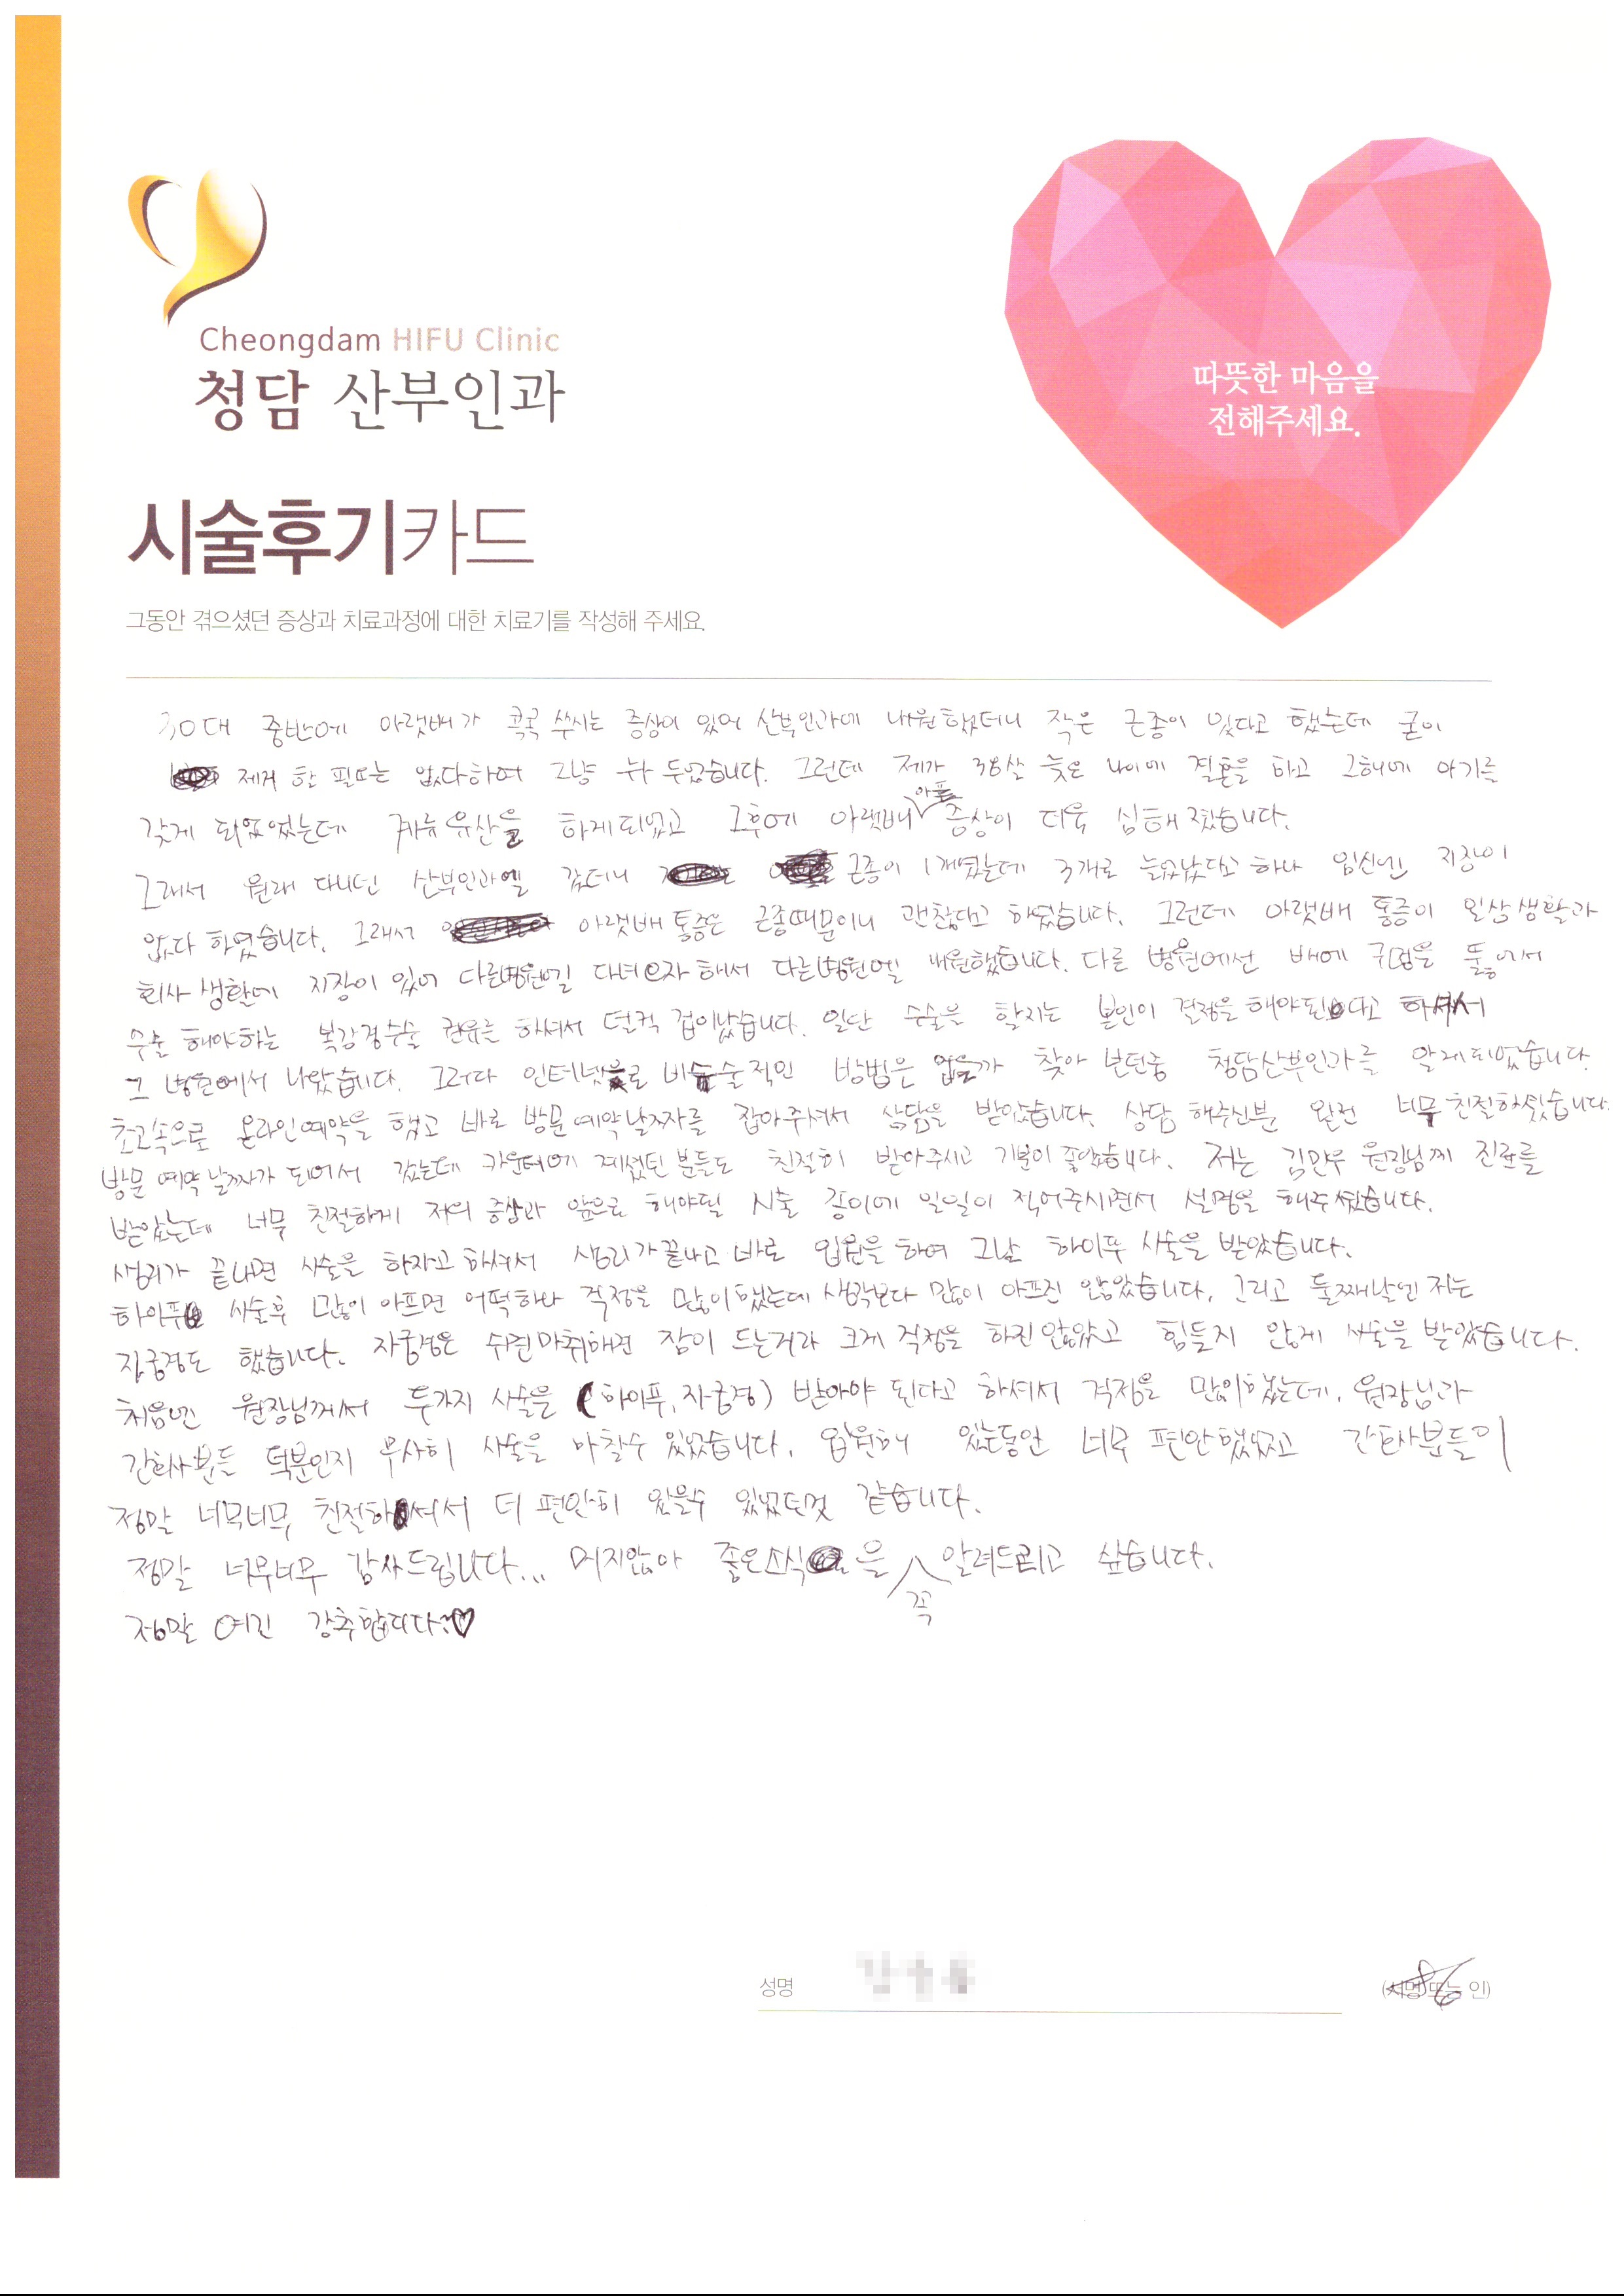 Cheongdam HIFU Clinic
청담 산부인과
따뜻한 마음을
전해주세요.
시술후기카드
그동안 겪으셨던 증상과 치료과정에 대한 치료기를 작성해 주세요.
30대 중반에 아랫배가 콕콕 쑤시는 증상이 있어 산부인과에 내원했더니 작은 근종이 있다고 했는데 굳이
제거 한 필요는 없다하여 그냥 놔 두었습니다. 그런데 제가 38살 늦은 나이에 결혼을 하고 그해에 아기를
갖게 되었었는데 계류유산을 하게되었고 그후에 아랫배 아픈 증상이 더욱 심해졌습니다.
그래서 원래 다니던 산부인과엘 갔더니 근종이 1개였는데 3개로 늘어났다고 하나 임신엔 지장이
없다 하였습니다. 그래서 아랫배 통증은 근종때문이니 괜찮다고 하였습니다. 그런데 아랫배 통증이 일상생활과
회사 생활에 지장이 있어 다른병원엘 다녀오자 해서 다른병원엘 내원했습니다. 다른 병원에선 배에 구멍을 뚫어서
수술 해야하는 복강경수술 권유를 하셔서 덜컥 겁이났습니다. 일단 수술을 할지는 본인이 결정을 해야된다고 하셔서
그 병원에서 나왔습니다. 그러다 인터넷으로 비수술적인 방법은 없을가 찾아 보던중 청담산부인과를 알게되었습니다.
초고속으로 온라인예약을 했고 바로 방문예약날짜를 잡아주셔서 상담을 받았습니다. 상담 해주신분 완전 너무 친절하셨습니다.
방문 예약 날짜가 되어서 갔는데 카운터에 계셨던 분들도 친절히 받아주시고 기분이 좋았습니다. 저는 김민우 원장님께 진료를
받았는데 너무 친절하게 저의 증상과 앞으로 해야될 시술 종이에 일일이 적어주시면서 설명을 해주셨습니다.
생리가 끝나면 시술을 하자고 하셔서 생리가끝나고 바로 입원을 하여 그날 하이푸 시술을 받았습니다.
하이푸 시술후 많이 아프면 어떡하나 걱정을 많이했는데 생각보다 많이 아프진 않았습니다. 그리고 둘째날엔 저는
자궁경도 했습니다. 자궁경은 수면마취하면 잠이 드는거라 크게 걱정을 하진않았고 힘들지 않게 시술을 받았습니다.
처음엔 원장님께서 두가지 시술을 (하이푸, 자궁경) 받아야 된다고 하셔서 걱정을 많이했는데, 원장님과
간호사분들 덕분인지 무사히 시술을 마칠수 있었습니다. 입원해 있는동안 너무 편안했었고 간호사분들이
정말 너무너무 친절하셔서 더 편안히 있을수 있었던것 같습니다.
정말 너무너무 감사드립니다... 머지않아 좋은소식을 꼭 알려드리고 싶습니다.
정말 여긴 강추합니다.♡
성명
(서명 또는 인)